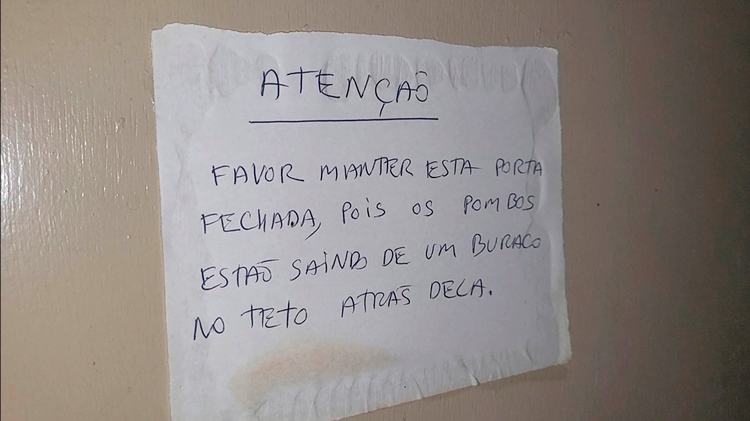 ATENÇÃO
FAVOR MANTER ESTA PORTA
FECHADA, POIS OS POMBOS
ESTÃO SAINDO DE UM BURACO
NO TETO ATRÁS DELA.